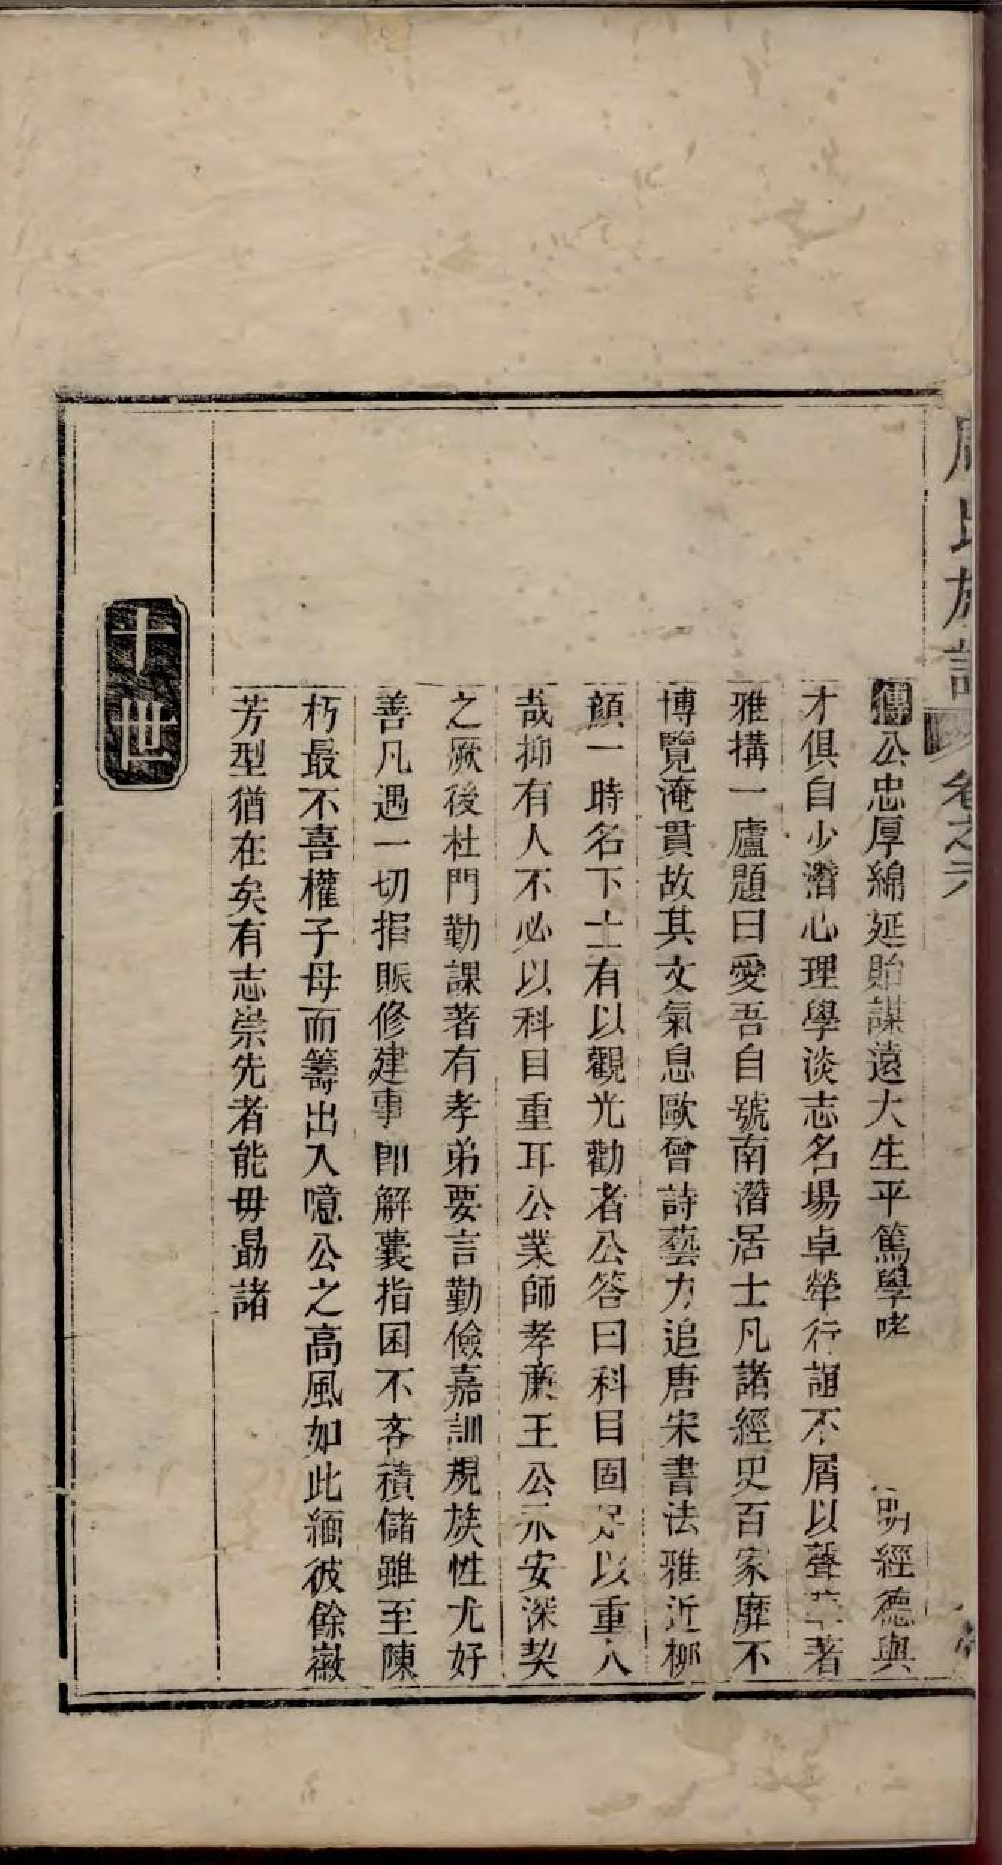 周氏族譜 卷之六
傳公忠厚綿延貽謀遠大生平篤學 明經德與
才俱自少潛心理學淡志名場卓犖行誼不屑以聲華著
雅搆一廬題曰愛吾自號南潛居士凡諸經史百家靡不
博覽淹貫故其文氣息歐曾詩藝力追唐宋書法雅近柳
顔一時名下士有以觀光勸者公答曰科目固足以重人
哉抑有人不必以科目重耳公業師孝廉王公永安深契
之厥後杜門勤課著有孝弟要言勤儉嘉訓規族性尤好
善凡遇一切捐賑修建事卽解囊指囷不吝積儲雖至陳
朽最不喜權子母而籌出入噫公之高風如此緬彼餘徽
芳型猶在矣有志崇先者能毋勗諸
十世